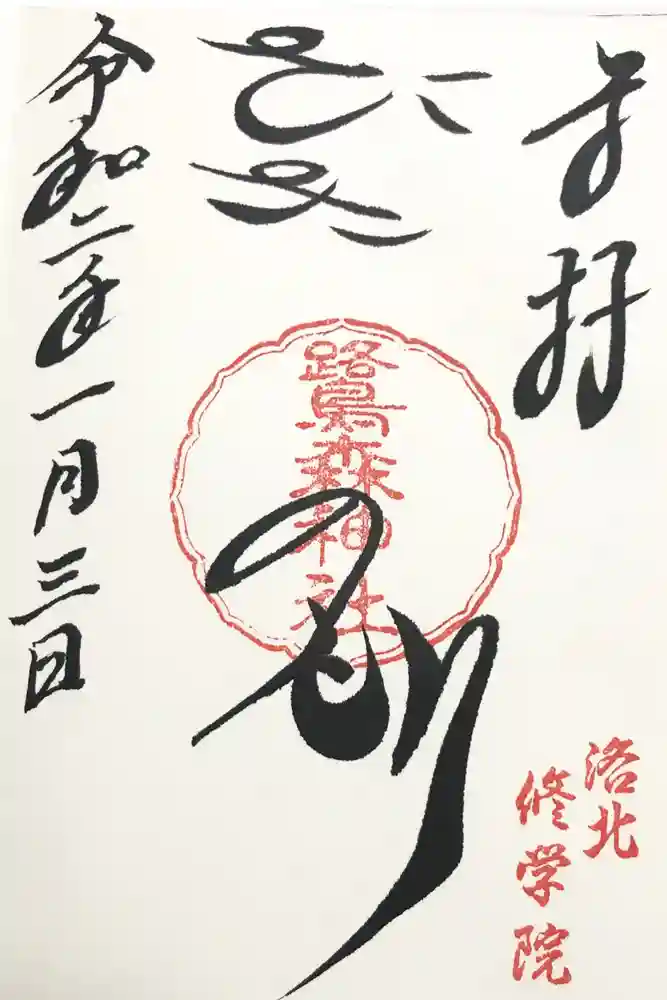 奉拝
洛北
修学院
鷺森神社
令和二年一月三日